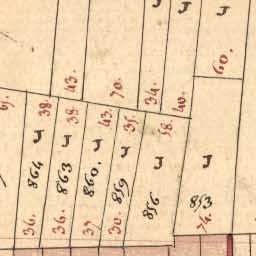 J
J
J
60.
43.
70.
34.
40.
38.
38.
43.
35.
38.
J
J
J
J
J
J
864
863
860.
859
856
853
36.
36.
37
30.
74.